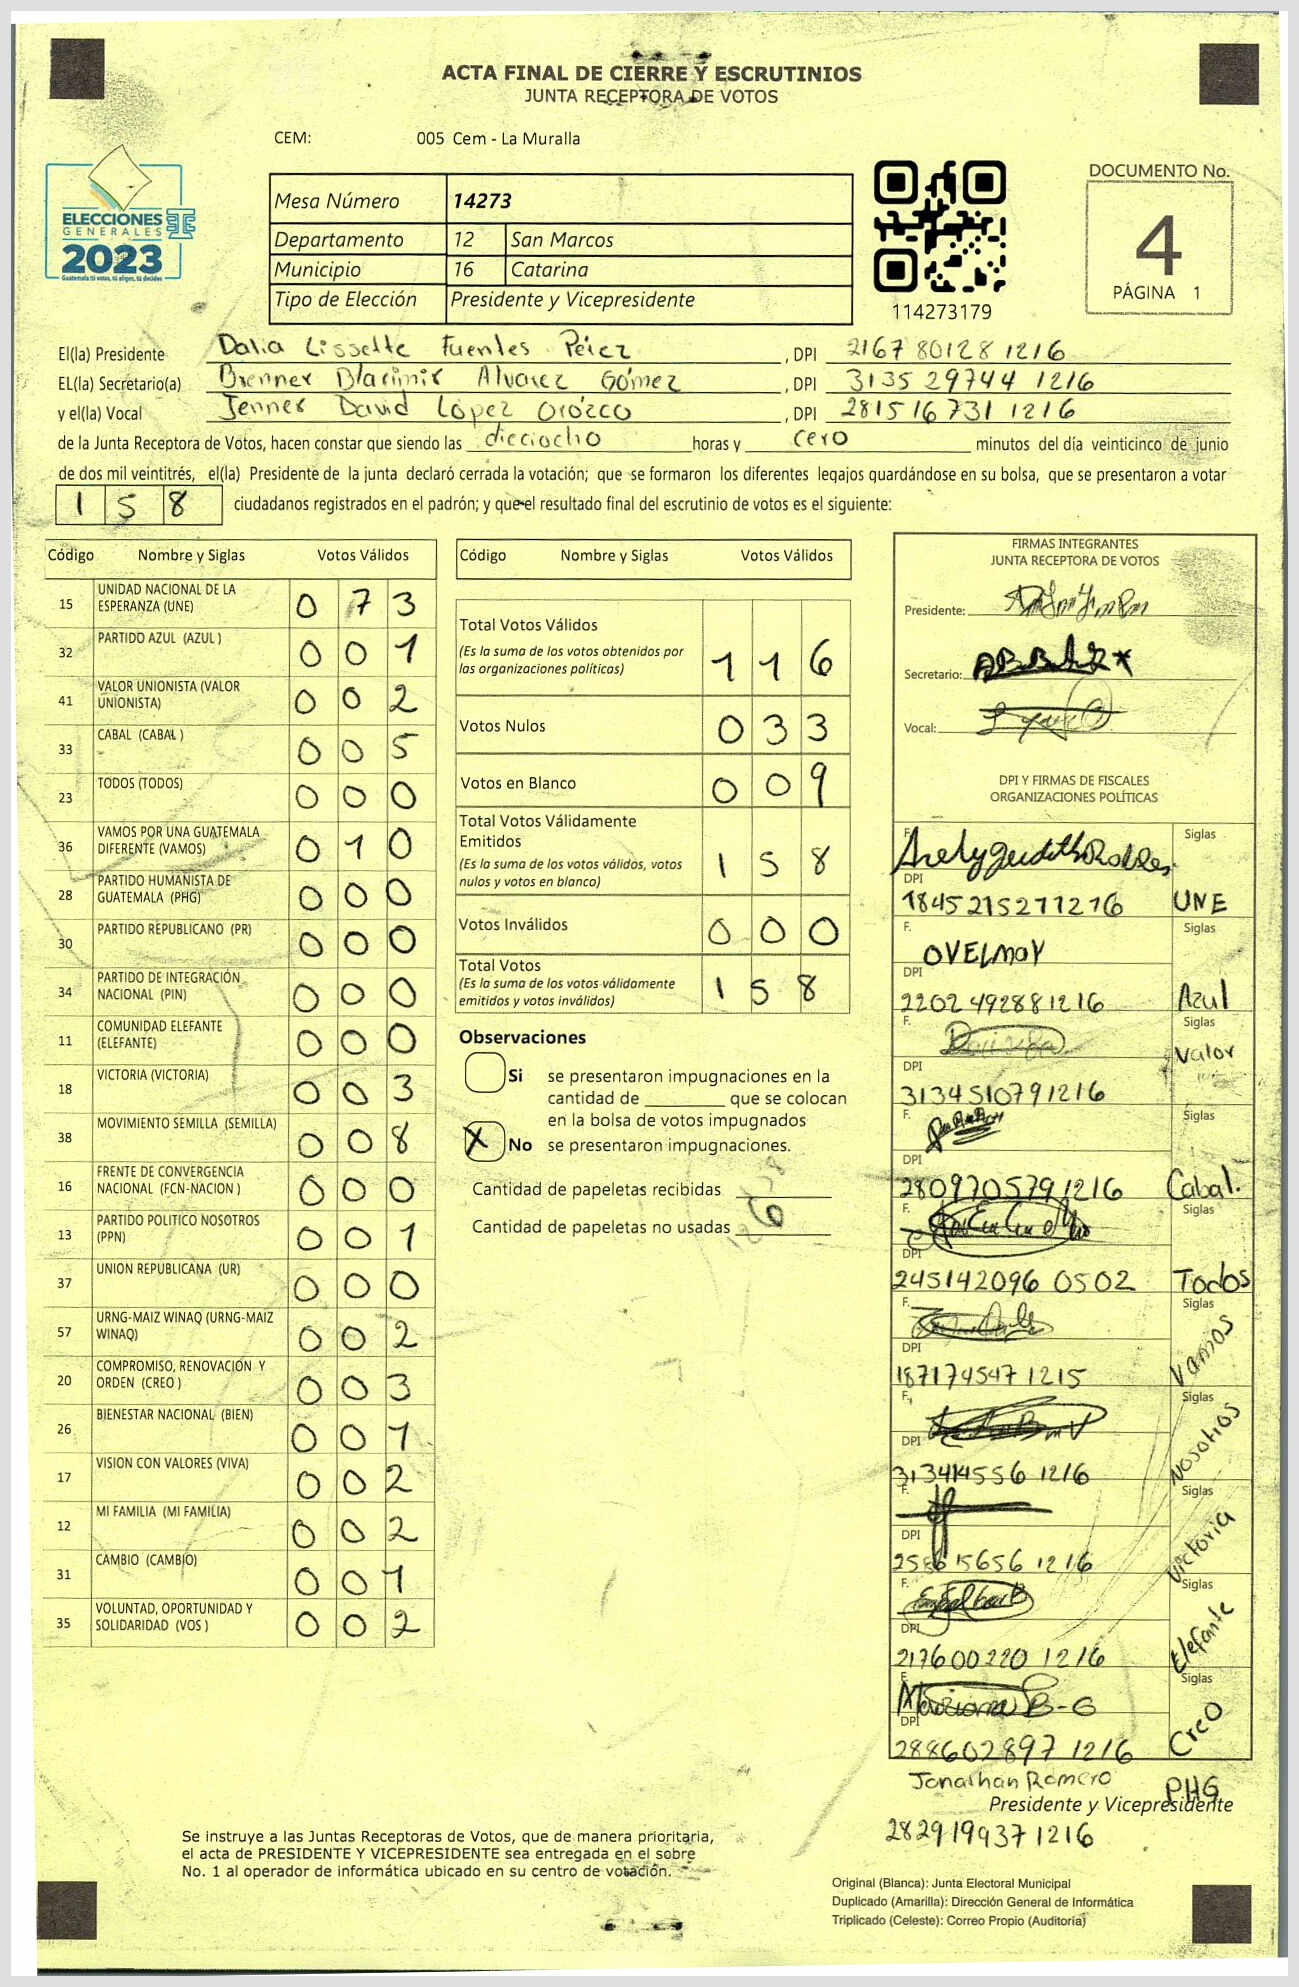 ACTA FINAL DE CIERRE Y ESCRUTINIOS
JUNTA RECEPTORA DE VOTOS
CEM: 005 Cem - La Muralla
ELECCIONES
GENERALES
2023
Guatemala tú votas, tú eliges, tú decides
Mesa Número 14273
Departamento 12 San Marcos
Municipio 16 Catarina
Tipo de Elección Presidente y Vicepresidente
114273179
DOCUMENTO No.
4
PÁGINA 1
El(la) Presidente Dalia Lissette Fuentes Pérez, DPI 2167 80128 1216
EL(la) Secretario(a) Brenner Blacimir Alvarez Gómez, DPI 3135 29744 1216
y el(la) Vocal Jenner David López Orózco, DPI 281516731 1216
de la Junta Receptora de Votos, hacen constar que siendo las dieciocho horas y cero minutos del día veinticinco de junio
de dos mil veintitrés, el(la) Presidente de la junta declaró cerrada la votación; que se formaron los diferentes legajos guardándose en su bolsa, que se presentaron a votar
158 ciudadanos registrados en el padrón; y que el resultado final del escrutinio de votos es el siguiente:
Código Nombre y Siglas Votos Válidos
15 UNIDAD NACIONAL DE LA ESPERANZA (UNE) 0 7 3
32 PARTIDO AZUL (AZUL ) 0 0 1
41 VALOR UNIONISTA (VALOR UNIONISTA) 0 0 2
33 CABAL (CABAL ) 0 0 5
23 TODOS (TODOS) 0 0 0
36 VAMOS POR UNA GUATEMALA DIFERENTE (VAMOS) 0 1 0
28 PARTIDO HUMANISTA DE GUATEMALA (PHG) 0 0 0
30 PARTIDO REPUBLICANO (PR) 0 0 0
34 PARTIDO DE INTEGRACIÓN NACIONAL (PIN) 0 0 0
11 COMUNIDAD ELEFANTE (ELEFANTE) 0 0 0
18 VICTORIA (VICTORIA) 0 0 3
38 MOVIMIENTO SEMILLA (SEMILLA) 0 0 8
16 FRENTE DE CONVERGENCIA NACIONAL (FCN-NACION ) 0 0 0
13 PARTIDO POLITICO NOSOTROS (PPN) 0 0 1
37 UNION REPUBLICANA (UR) 0 0 0
57 URNG-MAIZ WINAQ (URNG-MAIZ WINAQ) 0 0 2
20 COMPROMISO, RENOVACIÓN Y ORDEN (CREO ) 0 0 3
26 BIENESTAR NACIONAL (BIEN) 0 0 1
17 VISION CON VALORES (VIVA) 0 0 2
12 MI FAMILIA (MI FAMILIA) 0 0 2
31 CAMBIO (CAMBIO) 0 0 1
35 VOLUNTAD, OPORTUNIDAD Y SOLIDARIDAD (VOS ) 0 0 2
Código Nombre y Siglas Votos Válidos
Total Votos Válidos 1 1 6
(Es la suma de los votos obtenidos por
las organizaciones políticas)
Votos Nulos 0 3 3
Votos en Blanco 0 0 9
Total Votos Válidamente
Emitidos 1 5 8
(Es la suma de los votos válidos, votos
nulos y votos en blanco)
Votos Inválidos 0 0 0
Total Votos 1 5 8
(Es la suma de los votos válidamente
emitidos y votos inválidos)
Observaciones
Si se presentaron impugnaciones en la
cantidad de que se colocan
en la bolsa de votos impugnados
X No se presentaron impugnaciones.
Cantidad de papeletas recibidas
Cantidad de papeletas no usadas
FIRMAS INTEGRANTES
JUNTA RECEPTORA DE VOTOS
Presidente:
Secretario:
Vocal:
DPI Y FIRMAS DE FISCALES
ORGANIZACIONES POLÍTICAS
F. Siglas
DPI
1845215271216 UNE
F. OVELMAY Siglas
DPI
2202 492881216 Azul
F. Siglas
DPI Valor
3134510791216
F. Siglas
DPI
2809705791216 Cabal.
F. Siglas
DPI
245142096 0502 Todos
F. Siglas
DPI
187174547 1215 Vamos
F. Siglas
DPI
313414556 1216 Nosotros
F. Siglas
DPI
258615656 1216 Victoria
F. Siglas
DPI
217600220 1216 Elefante
F. Siglas
DPI
288602897 1216 Creo
Jonathan Romero PHG
Presidente y Vicepresidente
282919937 1216
Se instruye a las Juntas Receptoras de Votos, que de manera prioritaria,
el acta de PRESIDENTE Y VICEPRESIDENTE sea entregada en el sobre
No. 1 al operador de informática ubicado en su centro de votación.
Original (Blanca): Junta Electoral Municipal
Duplicado (Amarilla): Dirección General de Informática
Triplicado (Celeste): Correo Propio (Auditoría)